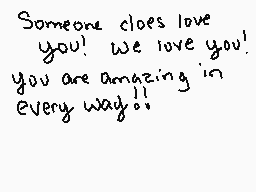 Someone does love
you! We love you!
you are amazing in
every way!!